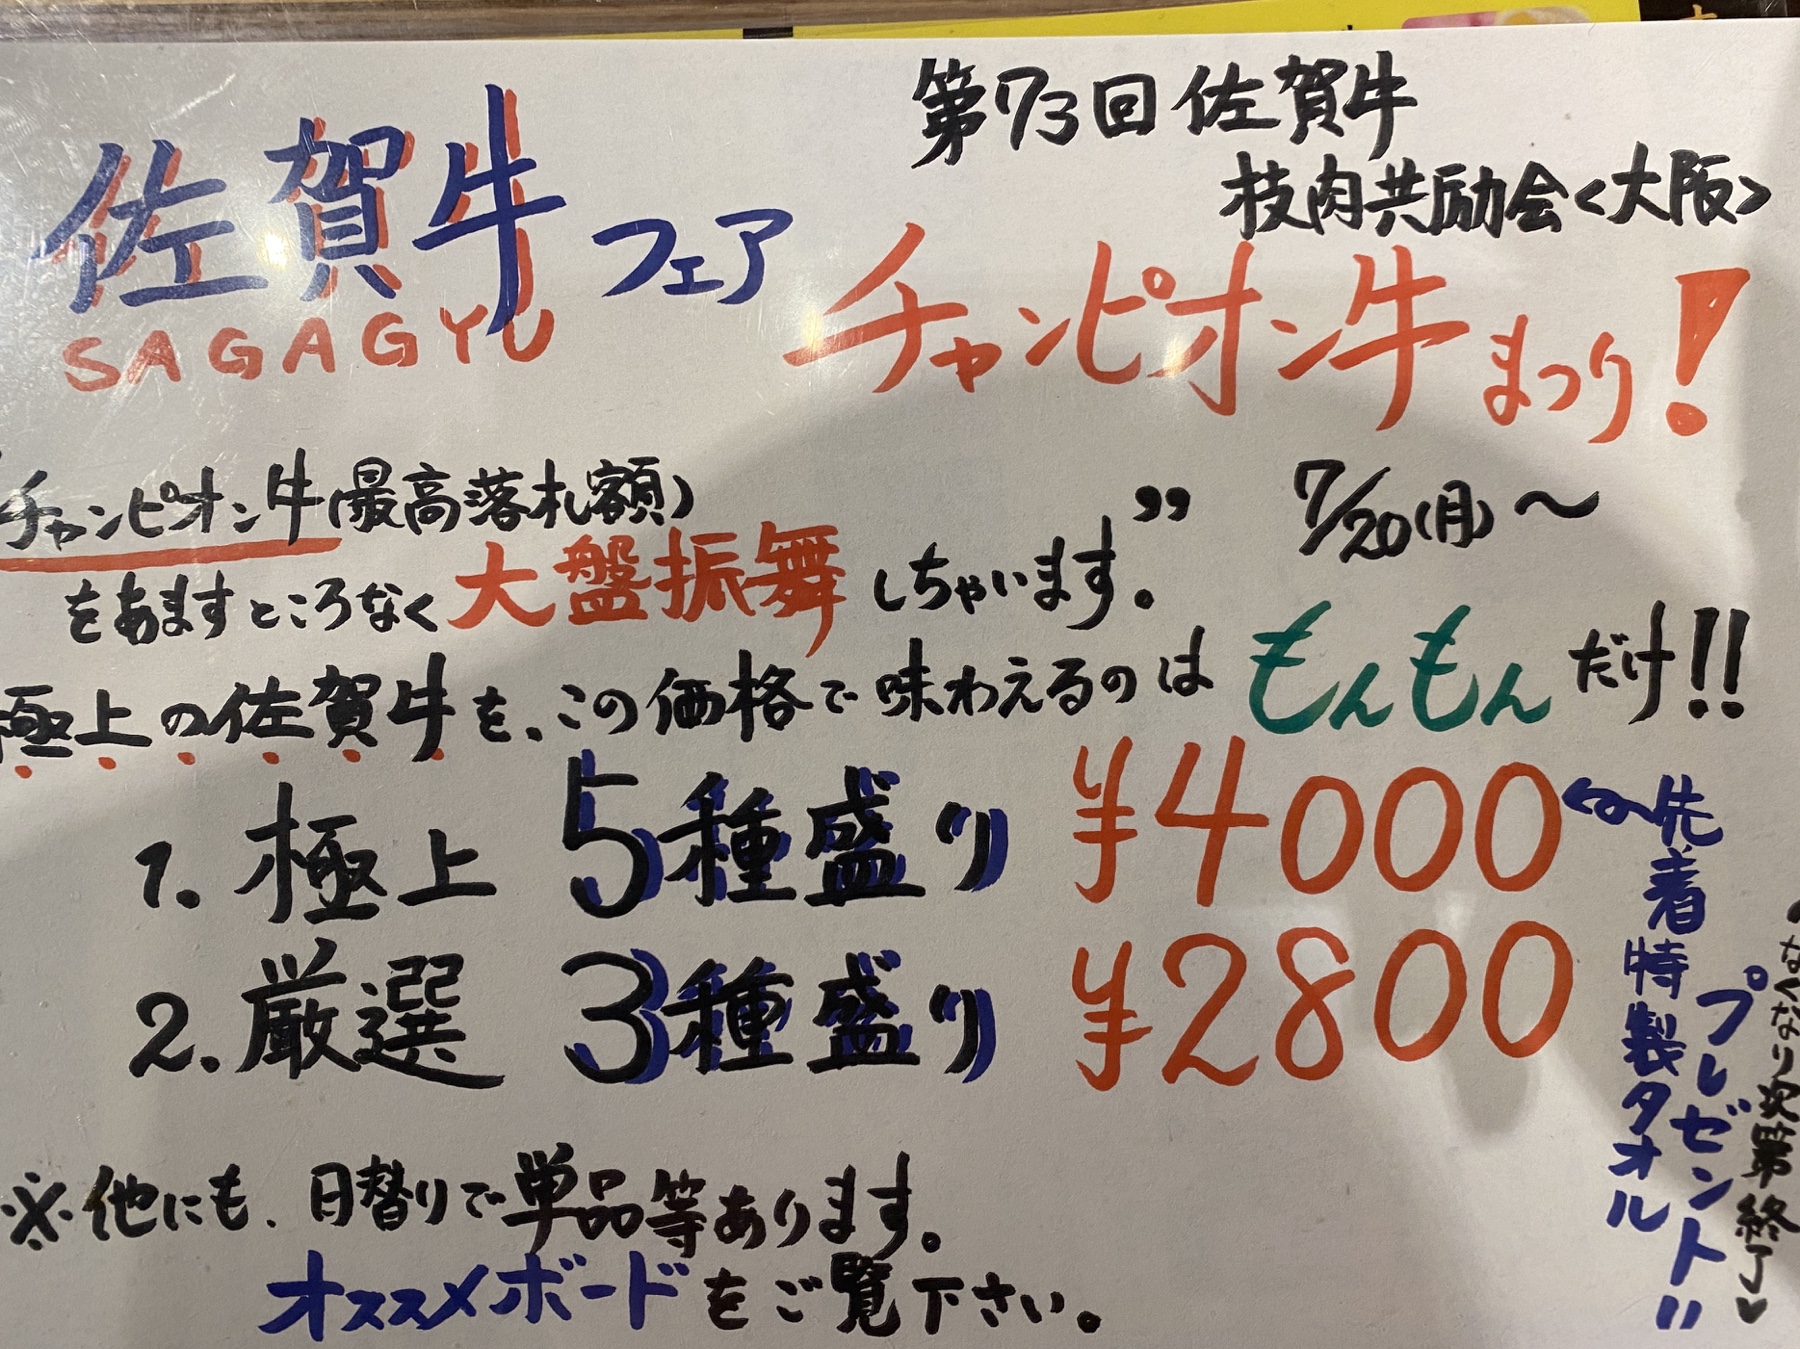 佐賀牛フェア
SAGAGYU
第73回佐賀牛
枝肉共励会<大阪>
チャンピオン牛まつり!
チャンピオン牛(最高落札額)
をあますところなく大盤振舞しちゃいます。”
7/20(月)～
極上の佐賀牛を、この価格で味わえるのはもんもんだけ!!
1. 極上 5種盛り ¥4000
2. 厳選 3種盛り ¥2800
先着特製タオル
プレゼント!!
なくなり次第終了♥
※他にも、日替りで単品等あります。
オススメボードをご覧下さい。